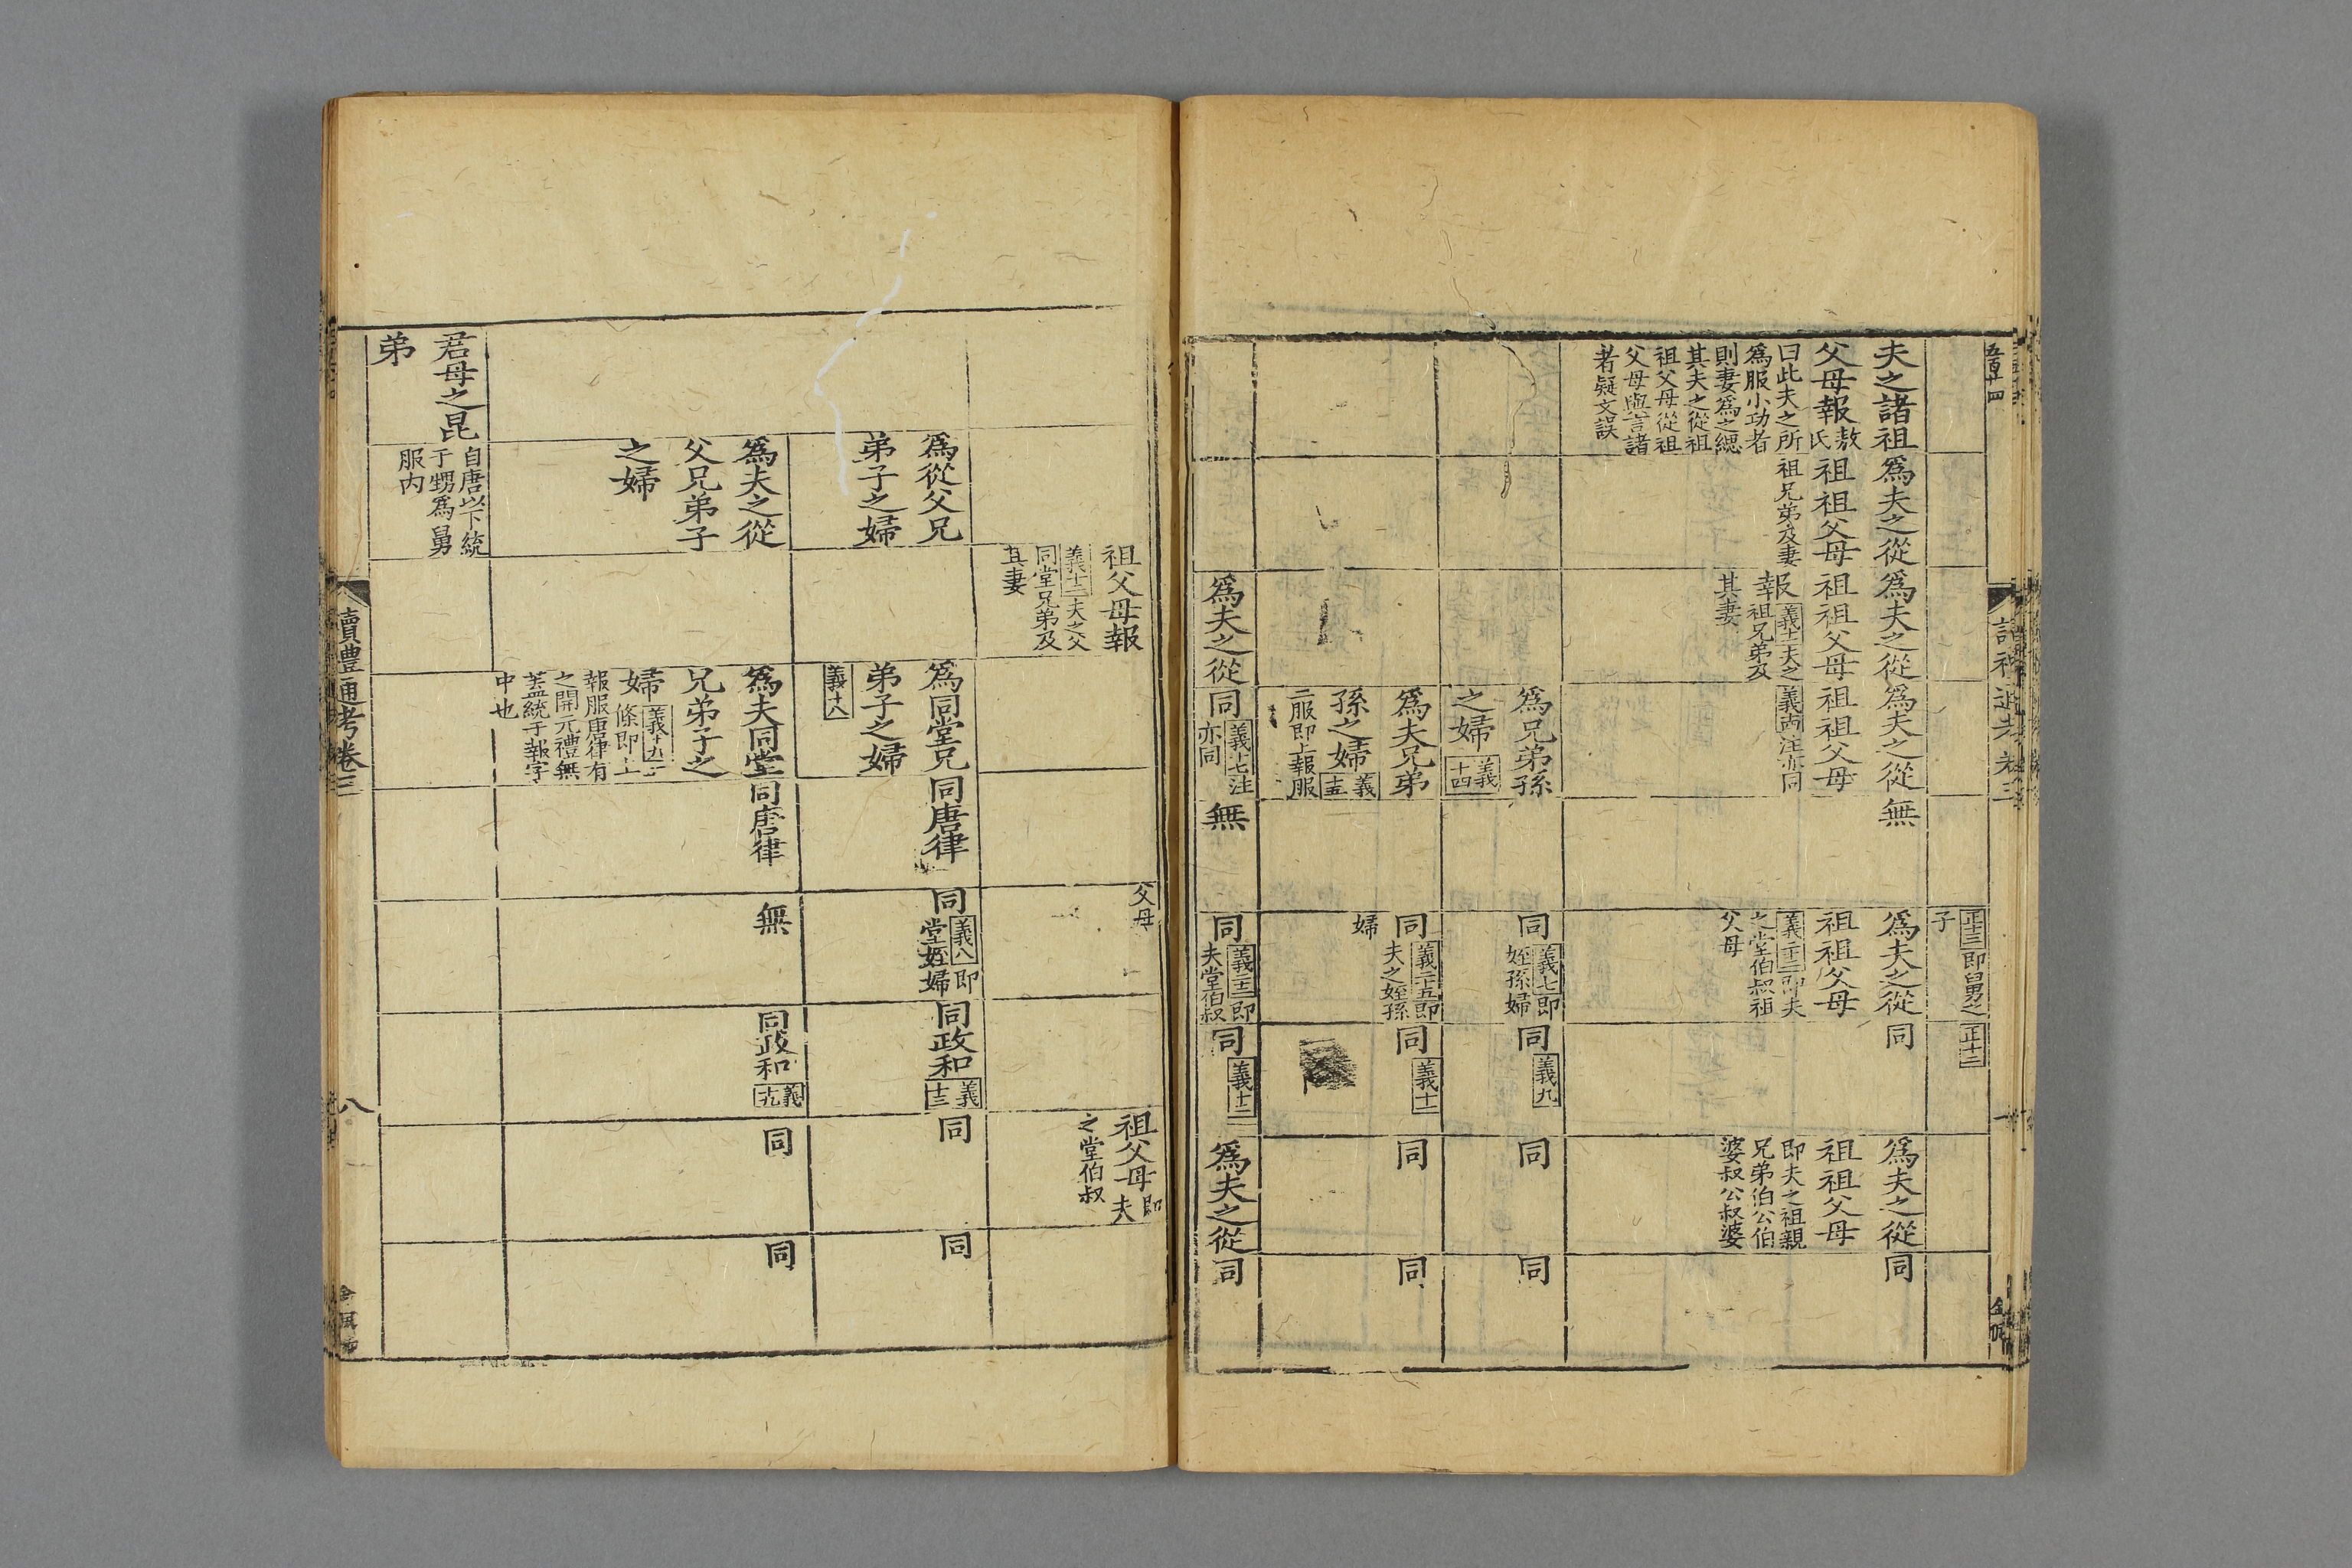 五百十四
讀禮通考卷三
正十三即舅之
子
正十二
夫之諸祖
父母報敖
氏
曰此夫之所
為服小功者
則妻為之緦
其夫之從祖
祖父母從祖
父母與言諸
者疑文誤
為夫之從
祖祖父母
祖兄弟及妻
為夫之從
祖祖父母
報義十一夫之
祖兄弟及
其妻
為夫之從
祖祖父母
注亦同
無
為夫之從
祖祖父母
義二十二即夫
之堂伯叔祖
父母
同
為夫之從
祖祖父母
即夫之祖親
兄弟伯公伯
婆叔公叔婆
同
為兄弟孫
之婦義十四
同義七即
姪孫婦
同義九
同
同
為夫兄弟
孫之婦義十五
二服即上報服
同義二十五即
夫之姪孫
婦
同義十一
同
同
為夫之從
同義十七注
亦同
無
同義二十三即
夫堂伯叔
同義十二
為夫之從
同
祖父母報
義十二夫之父
同堂兄弟及
其妻
父母
祖父母即
夫
之堂伯叔
為從父兄
弟子之婦
為同堂兄
弟子之婦
義十八
同唐律
同義八即
堂姪婦
同政和義十三
同
同
為夫之從
父兄弟子
之婦
為夫同堂
兄弟子之
婦義十九二
條即上
報服唐律有
之開元禮無
蓋統于報字
中也
同唐律
無
同政和義十九
同
同
君母之昆
弟
自唐以下統
于甥為舅
服內
讀禮通考卷三
八